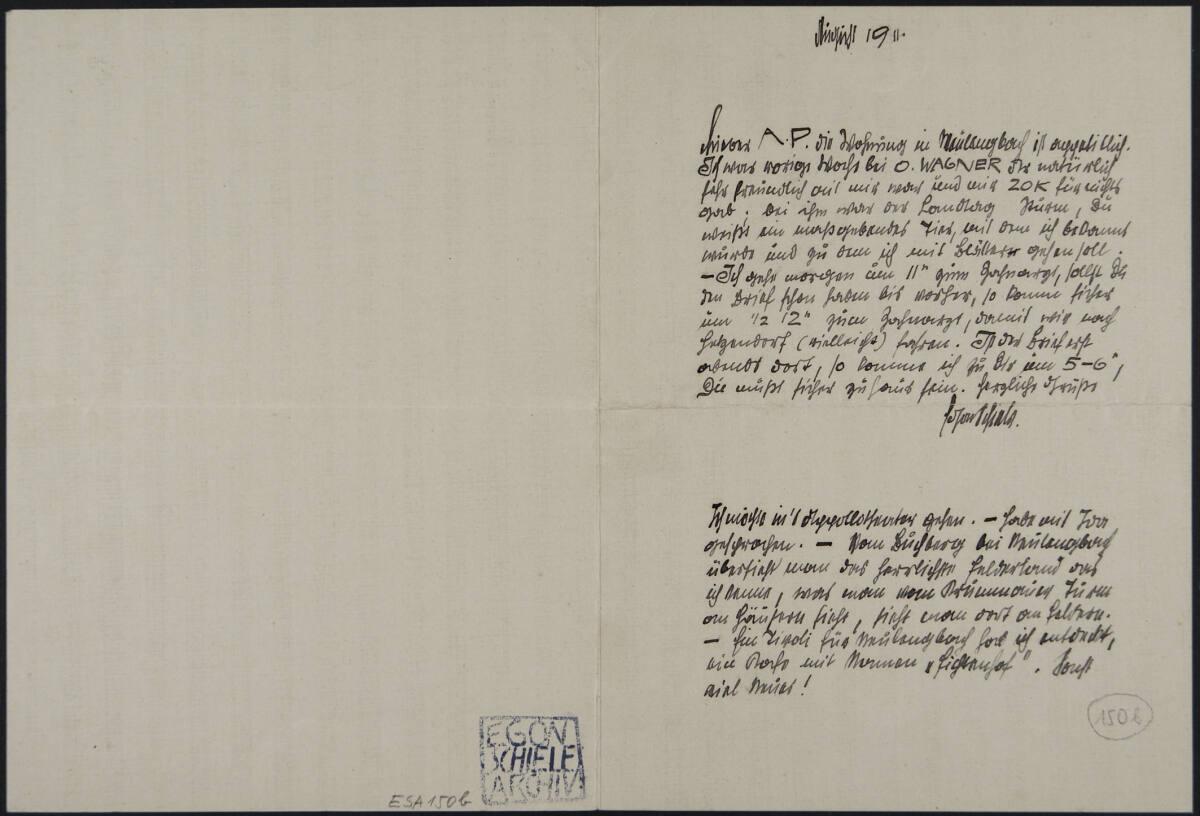 August 1911.
Lieber A. P. die Wohnung in Neulengbach ist appetitlich.
Ich war vorige Woche bei O. WAGNER der natürlich
sehr freundlich mit mir war und mir 20 K für nichts
gab; bei ihm war der Landtag Sturm, Du
weißt ein maßgebendes Tier, mit dem ich bekannt
wurde und zu dem ich mit Blättern gehen soll.
– Ich gehe morgen um 11h zum Zahnarzt, sollst Du
den Brief schon haben bis vorher, so komme sicher
um ½ 12h zum Zahnarzt, damit wir nach
Hetzendorf (vielleicht) fahren. Ist der Brief erst
abends dort, so komme ich zu Dir um 5–6h,
Du mußt sicher zuhaus sein. Herzliche Grüße
Egon Schiele.
Ich möchte in's Apollotheater gehen. – Habe mit Ida
gesprochen. – Vom Buchberg bei Neulengbach
übersieht man das herrlichste Felderland das
ich kenne, was man vom Krummauer Turm
an Häusern sieht, sieht man dort an Feldern.
– Ein Tivoli für Neulengbach hab ich entdeckt,
ein Kafe mit Namen „Fichtenhof". Sonst
viel Neues!
150 b
EGON
SCHIELE
ARCHIV
ESA 150 b